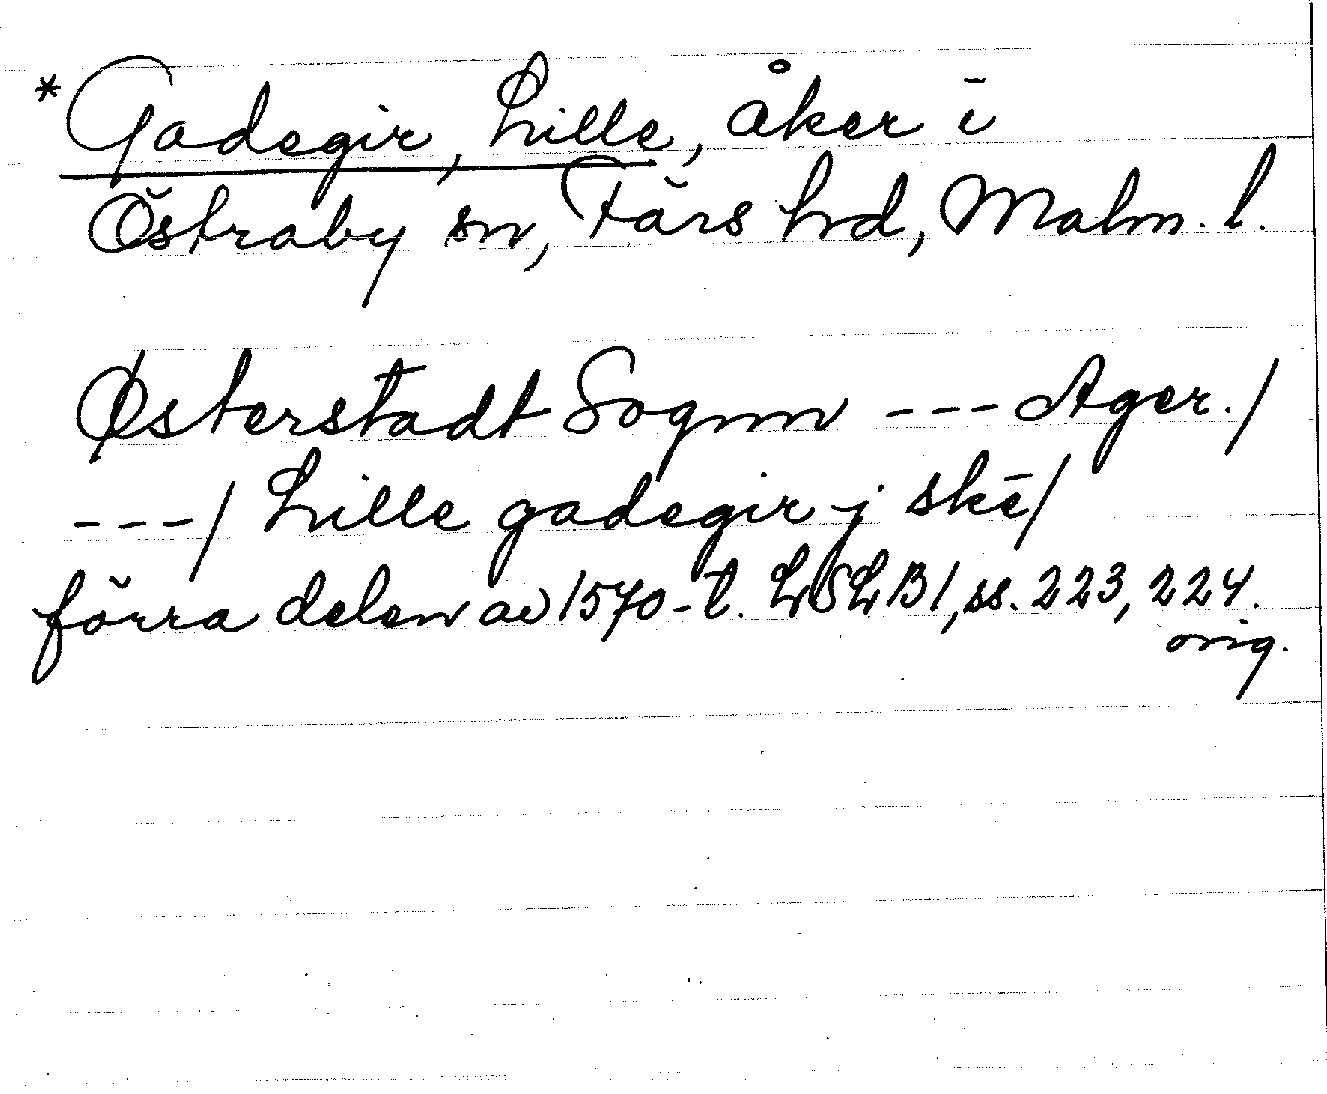 *Gadegir, Lille, åker i
Östraby sn, Färs hd, Malm. l.
Østerstadt Sognn --- Ager./
---/ Lille gadegir j skē/
förra delen av 1570-t. LSLB1, ss. 223, 224.
orig.